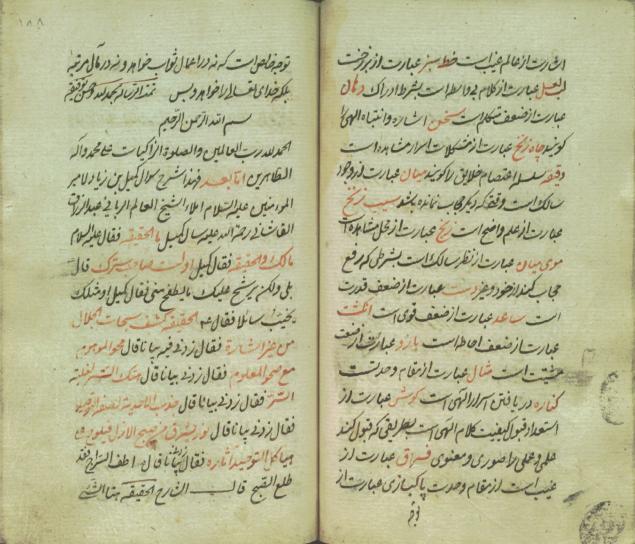 اشارت از عالم غیب است خط سبز عبارت از برزخ است
لب لعل عبارت از کلام بی واسطه است بشرط ادراک دهان
عبارت از صفت متکلم است سخن اشاره و انتباه الهی را
کویند چاه زنخ عبارت از مشکلات اسرار مشاهده است
عبارت از علم واضح است زنخ عبارت از محل مشاهده است
موی میان عبارت از نظر سالک است بشرطی که رفع
حجاب کند از خود و غیر دست عبارت از صفت قدرت
است ساعد عبارت از صفت قوی است انکشت
عبارت از صفت احاطه است بازو عبارت از صفت
مشیت است عبارت از مقام وحدتست
کناره دریافتن اسرار الهی است کوش عبارت از
استعداد قبول کیفیت کلام الهی است بطریقی که قبول کند
علمی و عملی را صوری و معنوی فراق عبارت از
غیب است از مقام وحدت پاکبازی عبارت از
۱۸۸
توجه خاص است که نه در اعمال ثواب خواهد و نه در مرتبه
بلکه خدای تعالی را خواهد و بس
بسم الله الرحمن الرحیم
الحمد لله رب العالمین و الصلوة علی محمد و آله
الطاهرین اما بعد فهذا شرح سؤال کمیل بن زیاد لامیر
المؤمنین علیه السلام املاء الشیخ العالم الربانی عبد الرزاق
رحمة الله علیه سأل کمیل ما الحقیقه فقال علیه السلام
مالک و الحقیقه فقال کمیل اولست صاحب سرک قال
بلی ولکن یرشح علیک ما یطفح منی فقال کمیل او مثلک
یخیب سائلا فقال الحقیقه کشف سبحات الجلال
من غیر اشارة فقال زدنی فیه بیانا قال محو الموهوم
مع صحو المعلوم فقال زدنی بیانا قال هتک الستر لغلبة
السر فقال زدنی بیانا قال جذب الاحدیة لصفة التوحید
فقال زدنی بیانا قال نور یشرق من صبح الازل فیلوح علی
هیاکل التوحید آثاره فقال زدنی بیانا قال اطف السراج فقد
طلع الصبح قال الشارح الحقیقه